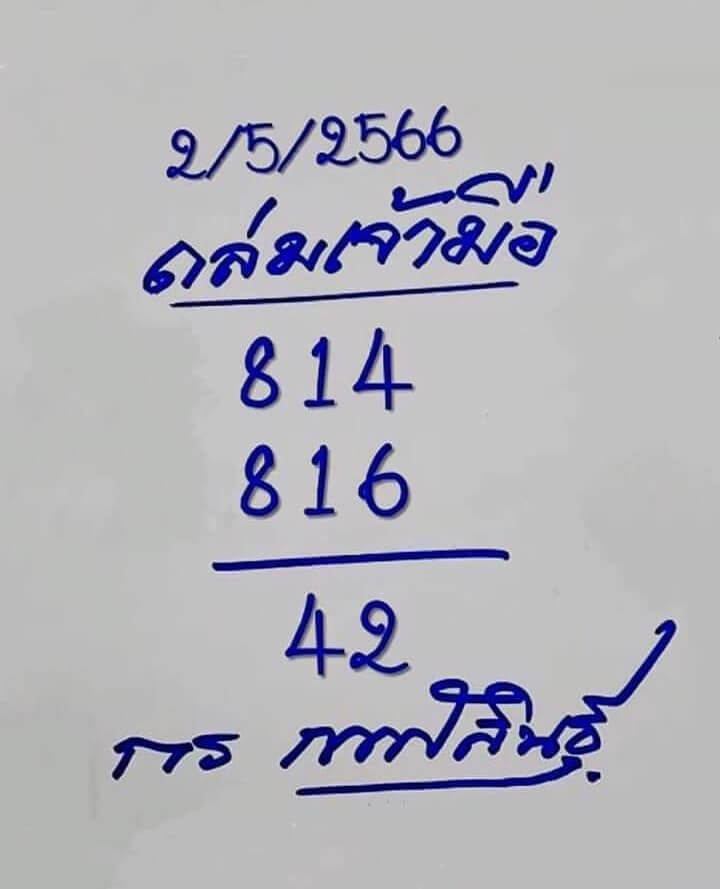 2/5/2566
ถล่มเจ้ามือ
814
816
42
กาฬสินธุ์